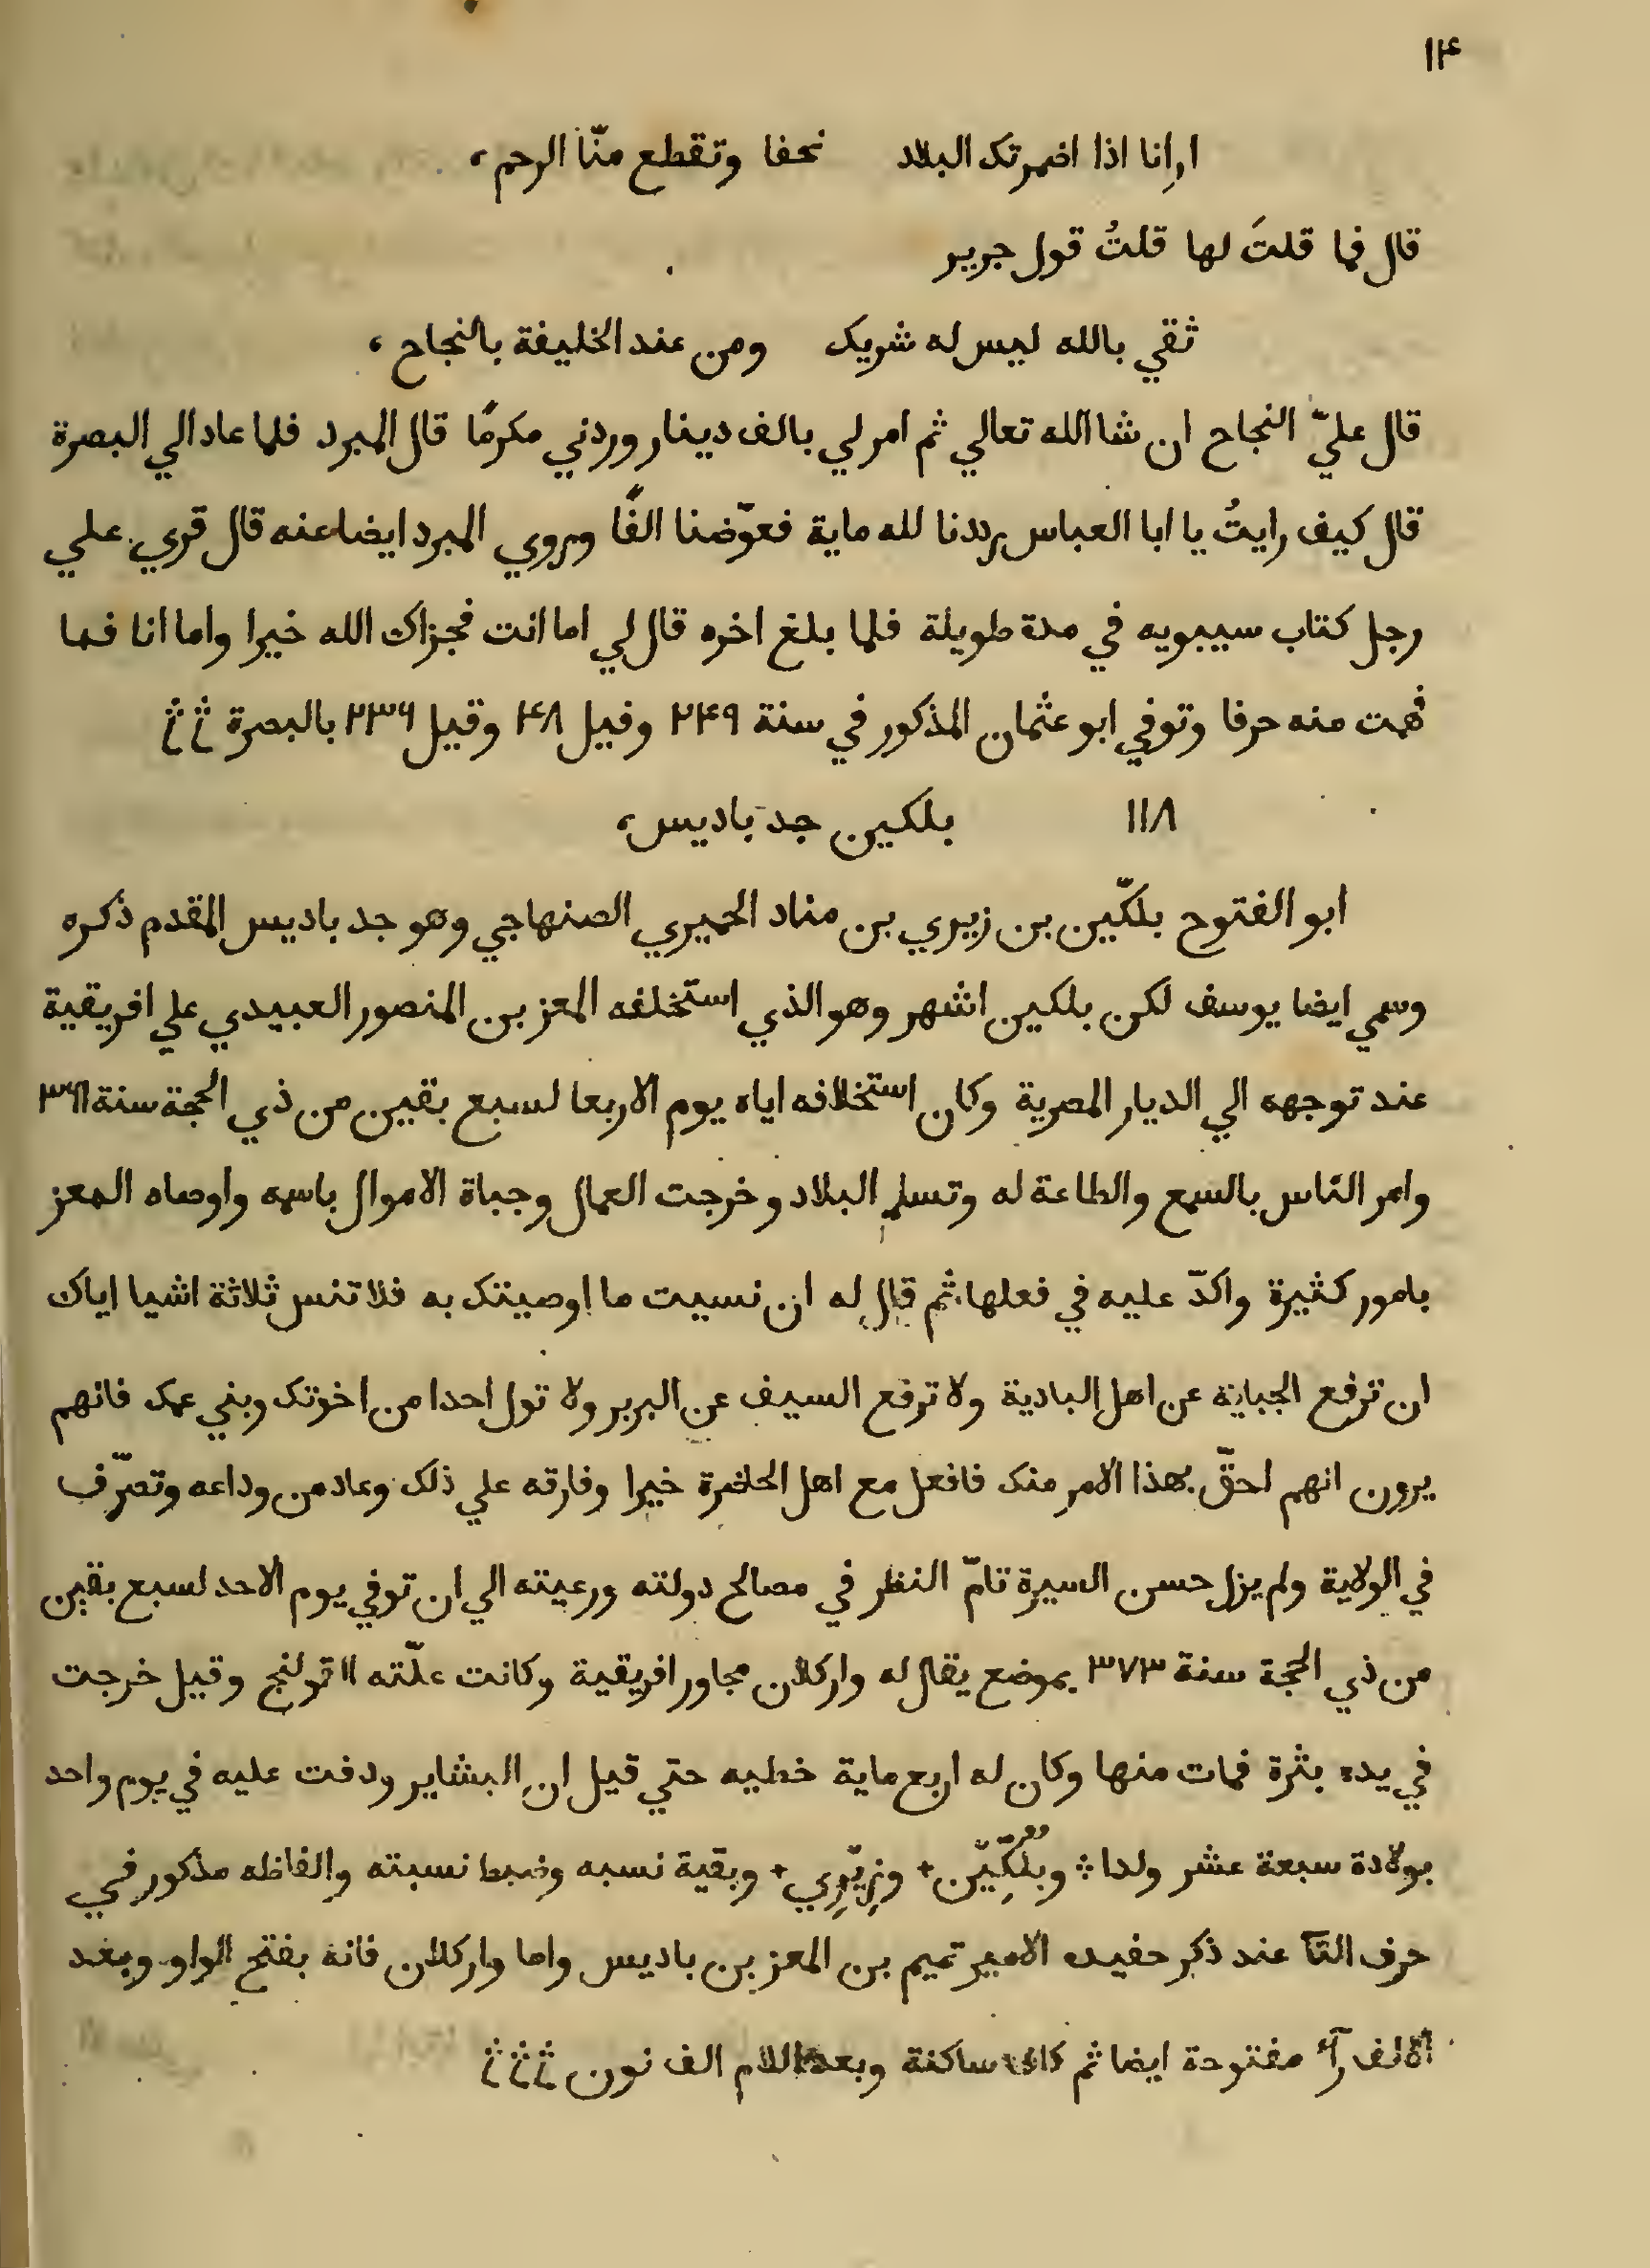 ١٤
ارانا اذا اضمرتك البلاد نجفا وتقطع منّا الرحم،
قال فما قلتَ لها قلتُ قول جرير
ثقي بالله ليس له شريك ومن عند الخليفة بالنجاح،
قال عليّ النجاح ان شا الله تعالي ثم امر لي بالف دينار وردني مكرمًا قال المبرد فلما عاد الي البصرة
قال كيف رايتُ يا ابا العباس رددنا لله ماية فعوّضنا الفًا ويروي المبرد ايضا عنه قال قري علي
رجل كتاب سيبويه في مدة طويلة فلما بلغ اخره قال لي اما انت فجزاك الله خيرا واما انا فما
فهمت منه حرفا وتوفي ابو عثمان المذكور في سنة ٢٤٩ وفيل ٤٨ وقيل ٢٣٦ بالبصرة
١١٨ بلكين جد باديس،
ابو الفتوح بلكّين بن زيري بن مناد الحميري الصنهاجي وهو جد باديس المقدم ذكره
وسمي ايضا يوسف لكن بلكين اشهر وهو الذي استخلفه المعز بن المنصور العبيدي علي افريقية
عند توجهه الي الديار المصرية وكان استخلافه اياه يوم الاربعا لسبع بقين من ذي الحجة سنة ٣٦١
وامر الناس بالسمع والطاعة له وتسلم البلاد وخرجت العمال وجباة الاموال باسمه واوصاه المعز
بامور كثيرة واكدّ عليه في فعلها ثم قال له ان نسيت ما اوصيتك به فلا تنس ثلاثة اشيا اياك
ان ترفع الجباية عن اهل البادية ولا ترفع السيف عن البربر ولا تول احدا من اخوتك وبني عمك فانهم
يرون انهم احقّ بهذا الامر منك فافعل مع اهل الحاضرة خيرا وفارقه علي ذلك وعاد من وداعه وتصرّف
في الولاية ولم يزل حسن السيرة تامّ النظر في مصالح دولته ورعيته الي ان توفي يوم الاحد لسبع بقين
من ذي الحجة سنة ٣٧٣ بموضع يقال له واركلان مجاور افريقية وكانت علّته القولنج وقيل خرجت
في يده بثرة فمات منها وكان له اربع ماية خطيه حتي قيل ان البشاير ودفت عليه في يوم واحد
بولادة سبعة عشر ولدا ⁘ وبُلُكِّيّن + وزِيّرِي + وبقية نسبه وضبط نسبته والفاظه مذكور في
حرف التآ عند ذكر حفيده الامير تميم بن المعز بن باديس واما واركلان فانه بفتح الواو وبعد
الالف رآء مفتوحة ايضا ثم كاف ساكنة وبعد اللام الف نون